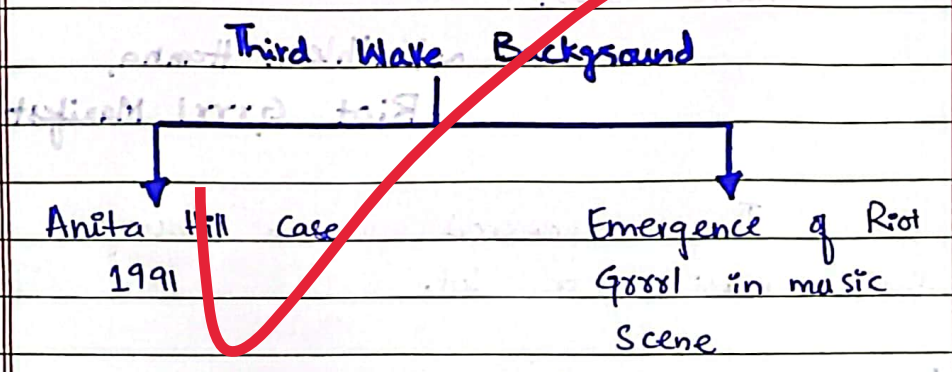 Third Wave Background
Anita Hill Case
1991
Emergence of Riot
Grrrl in music
Scene